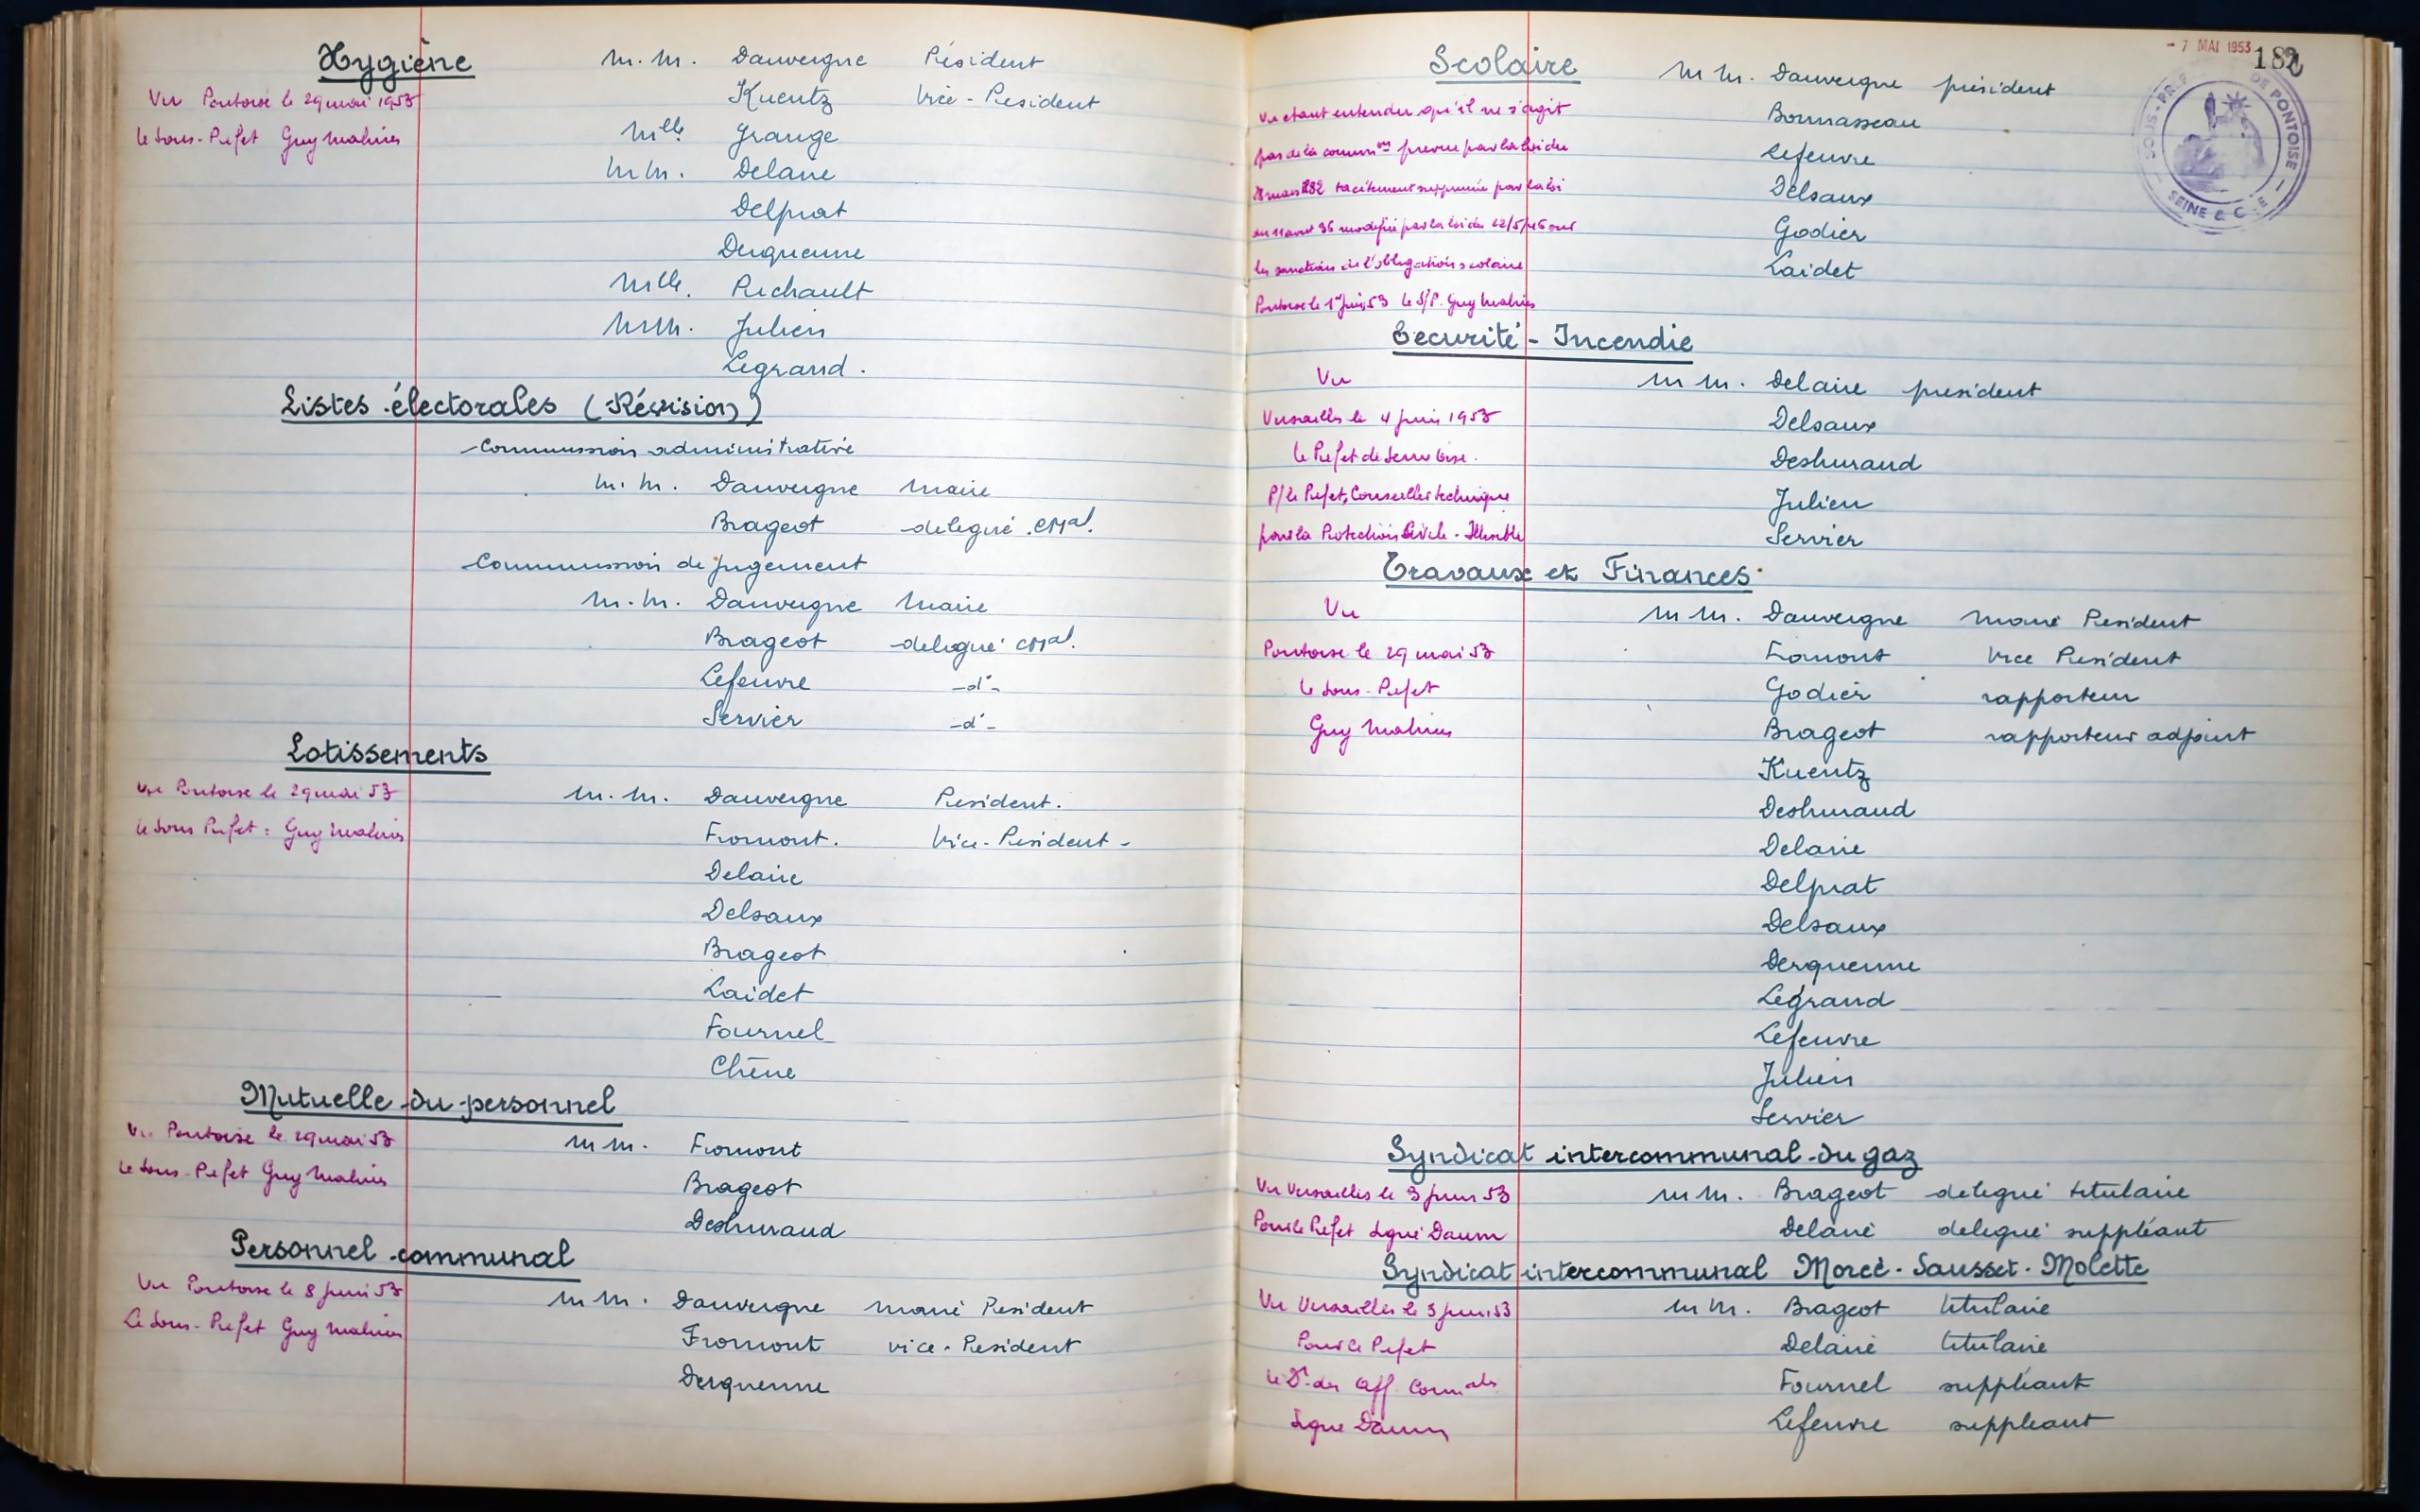 Hygiène
M.M. Dauvergne Président
Vu Pontoise le 29 mai 1953
Kuentz Vice-President
le Sous-Prefet Guy Malines
Mlle Grange
M.M. Delaire
Delprat
Derquenne
Mlle. Richault
M.M. Julien
Legrand.
Listes électorales (Révision)
Commission administrative
M.M. Dauvergne Maire
Brageot delegué cmal.
Commission de jugement
M.M. Dauvergne Maire
Brageot delegué cmal.
Lefeuvre -d°-
Servier -d°-
Lotissements
Vu Pontoise le 29 mai 53
M.M. Dauvergne President.
le Sous Prefet : Guy Malines
Fromont. Vice-President -
Delaire
Delsaux
Brageot
Laidet
Fournel
Chêne
Mutuelle du personnel
Vu Pontoise le 29 mai 53
M M. Fromont
le Sous-Prefet Guy Malines
Brageot
Deshuraud
Personnel communal
Vu Pontoise le 8 juin 53
M M. Dauvergne Maire President
Le Sous-Prefet Guy Malines
Fromont vice-President
Derquenne
- 7 MAI 1953
182
SOUS-PREF DE PONTOISE
SEINE & O
Scolaire
M M. Dauvergne président
Vu étant entendu qu'il ne s'agit
Bonnasseau
pas de la commion prevue par la loi du
Lefeuvre
28 mars 1882 tacitement supprimée par la loi
Delsaux
du 11 aout 36 modifiée par la loi du 22/5/46 sur
Godier
les sanctions de l'obligation scolaire
Laidet
Pontoise le 1er juin 53 Le S/P. Guy Malines
Sécurité - Incendie
Vu
M M. Delaire president
Versailles le 4 juin 1953
Delsaux
le Prefet de Seine Oise.
Deshuraud
P/le Prefet, Conseiller technique
Julien
pour la Protection Civile - Illisible
Servier
Travaux et Finances
Vu
M M. Dauvergne Maire President
Pontoise le 29 mai 53
Fromont Vice President
le Sous-Prefet
Godier rapporteur
Guy Malines
Brageot rapporteur adjoint
Kuentz
Deshuraud
Delaire
Delprat
Delsaux
Derquenne
Legrand
Lefeuvre
Julien
Servier
Syndicat intercommunal du gaz
Vu Versailles le 3 juin 53
M M. Brageot delegué titulaire
Pour le Prefet signé Daum
Delaire delegué suppléant
Syndicat intercommunal Morée - Sausset - Molette
Vu Versailles le 3 juin 53
M M. Brageot titulaire
Pour le Prefet
Delaire titulaire
le Dr des Aff. Commales
Fournel suppléant
signé Daum
Lefeuvre suppleant